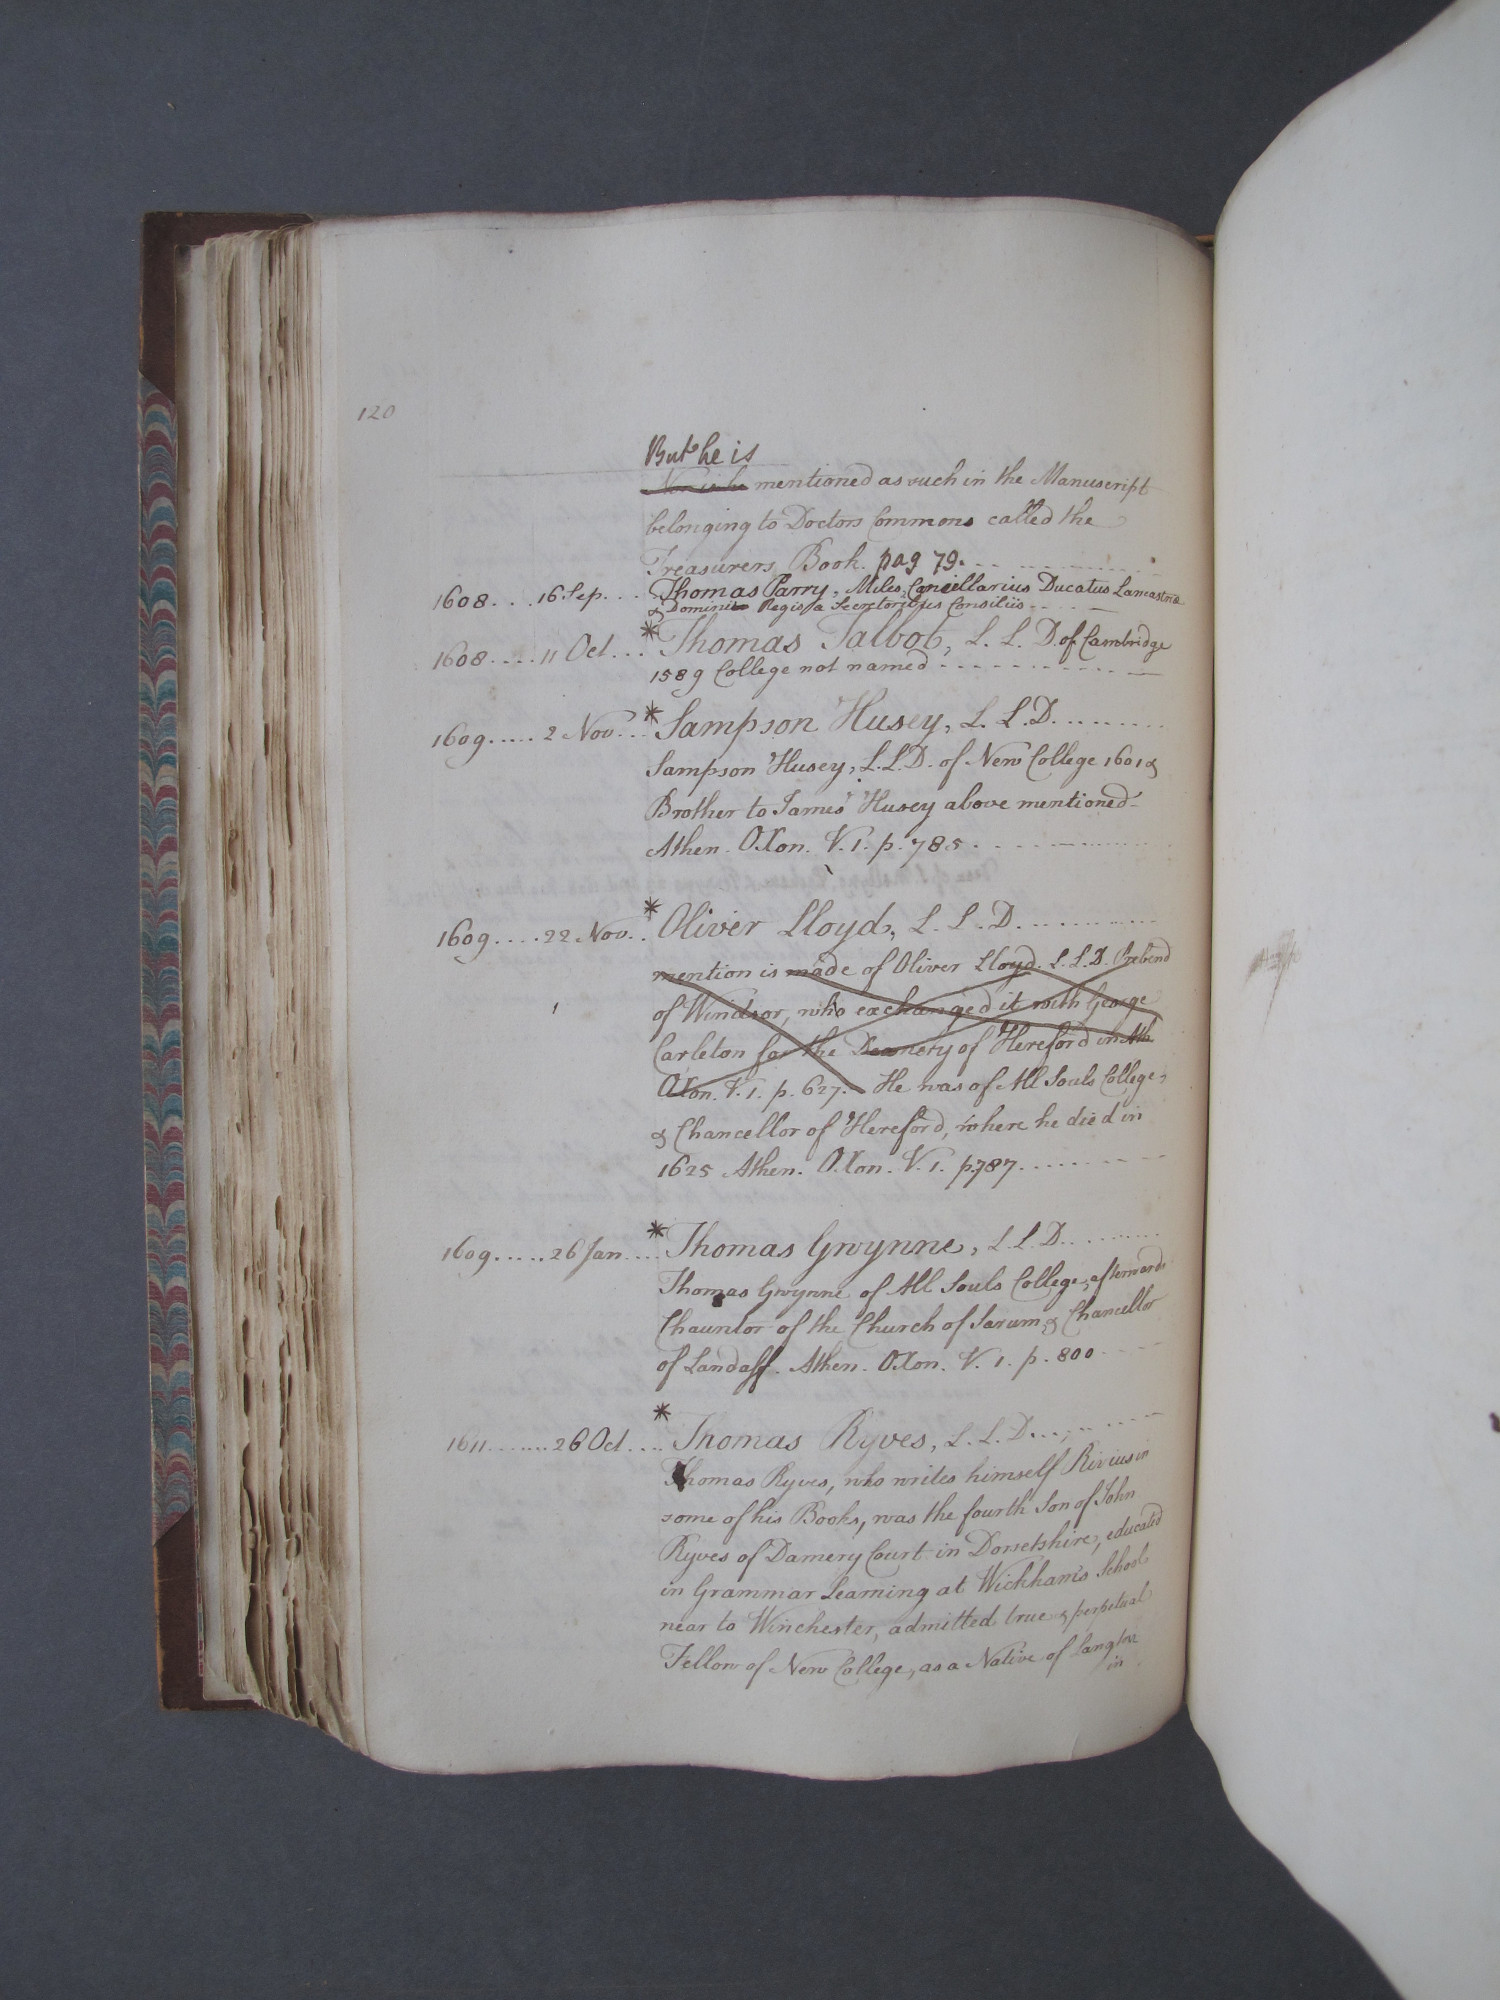 120
But he is
Nor is he mentioned as such in the Manuscript
belonging to Doctors Commons called the
Treasurers Book. pag 79.
1608... 16 Sep... Thomas Parry, Miles, Cancellarius Ducatus Lancastriæ
& Domini Regis a Secretoribus Consiliis
1608.... 11 Oct... * Thomas Talbot, L. L. D. of Cambridge
1589 College not named
1609..... 2 Nov... * Sampson Husey, L. L. D.
Sampson Husey, L.L.D. of New College 1601 &
Brother to James Husey above mentioned
Athen. OXon. V. 1. p. 785
1609.... 22 Nov.. * Oliver Lloyd, L. L. D.
mention is made of Oliver Lloyd. L.L.D. Prebend
of Windsor, who exchanged it with George
Carleton for the Deanery of Hereford in Ath.
OXon. V. 1. p. 627. He was of All Souls College,
& Chancellor of Hereford, where he died in
1625 Athen. OXon. V. 1. p. 787
1609..... 26 Jan.... * Thomas Gwynne, L. L. D.
Thomas Gwynne of All Souls College, afterwards
Chauntor of the Church of Sarum, & Chancellor
of Landaff. Athen. OXon. V. 1. p. 800
1611....... 26 Oct.... * Thomas Ryves, L. L. D.
Thomas Ryves, who writes himself Rivius in
some of his Books, was the fourth Son of John
Ryves of Damery Court in Dorsetshire, educated
in Grammar Learning at Wickham's School
near to Winchester, admitted true & perpetual
Fellow of New College, as a Native of Langton
in